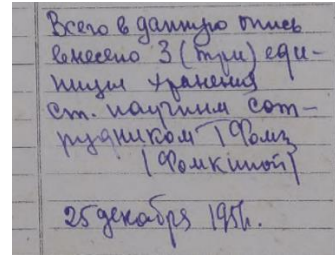 Всего в данную опись
внесено 3 (три) еди-
ницы хранения
ст. научным сот-
рудником
(Фомкиной)
25 декабря 195